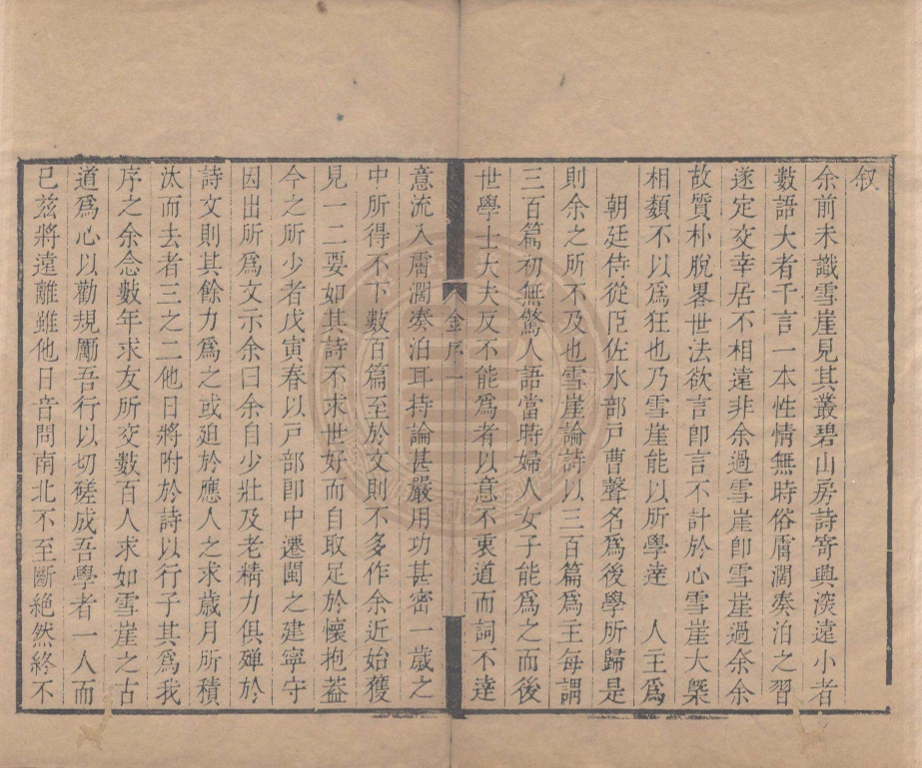 叙
余前未識雪崖見其叢碧山房詩寄興深遠小者
數語大者千言一本性情無時俗膚濶奏泊之習
遂定交幸居不相遠非余過雪崖卽雪崖過余余
故質朴脫畧世法欲言卽言不計於心雪崖大槩
相類不以爲狂也乃雪崖能以所學達　人主爲
朝廷侍從臣佐水部戸曹聲名爲後學所歸是
則余之所不及也雪崖論詩以三百篇爲主每謂
三百篇初無驚人語當時婦人女子能爲之而後
世學士大夫反不能爲者以意不衷道而詞不達
金序一
意流入膚濶奏泊耳持論甚嚴用功甚密一歲之
中所得不下數百篇至於文則不多作余近始獲
見一二要如其詩不求世好而自取足於懷抱葢
今之所少者戊寅春以戸部卽中遷閩之建寧守
因出所爲文示余曰余自少壯及老精力俱殫於
詩文則其餘力爲之或廹於應人之求歲月所積
汰而去者三之二他日將附於詩以行子其爲我
序之余念數年求友所交數百人求如雪崖之古
道爲心以勸規勵吾行以切磋成吾學者一人而
已兹將遠離雖他日音問南北不至斷絶然終不